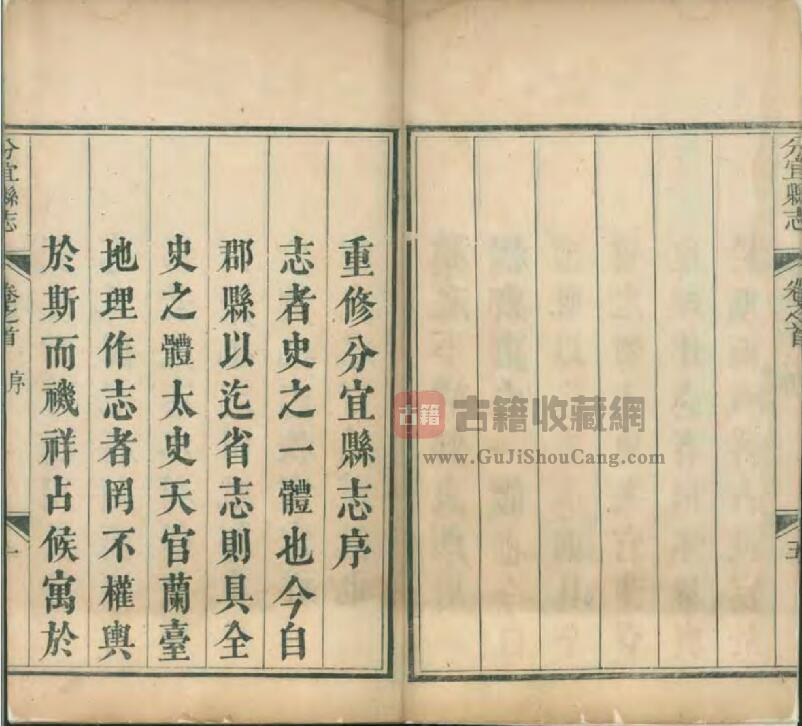 分宜縣志
卷之首
五
重修分宜縣志序
志者史之一體也今自
郡縣以迄省志則具全
史之體太史天官蘭臺
地理作志者罔不權輿
於斯而禨祥占候寓於
分宜縣志
卷之首
序
一
古籍
古籍收藏網
www.GuJiShouCang.com